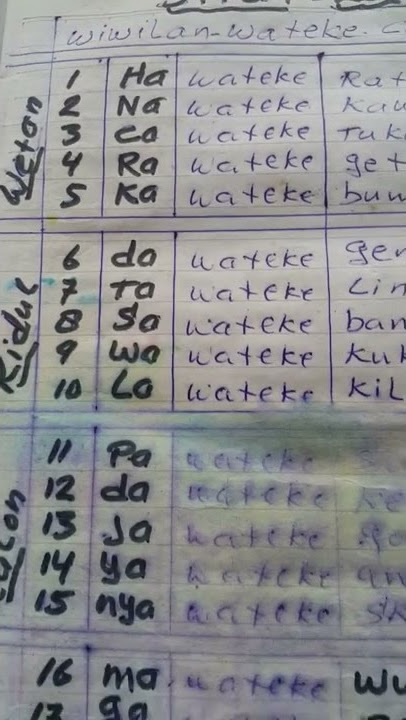 wiwilan-wateke. c
Wetan
1 Ha wateke Rat
2 Na wateke kau
3 Ca wateke Tuk
4 Ra wateke get
5 Ka wateke bum
Kidul
6 da wateke gen
7 Ta wateke Lin
8 Sa wateke ban
9 Wa wateke kuk
10 La wateke kiL
11 Pa wateke
12 da wateke ke
13 Ja wateke go
14 ya wateke an
15 nya wateke sk
16 ma wateke wu
17 ga